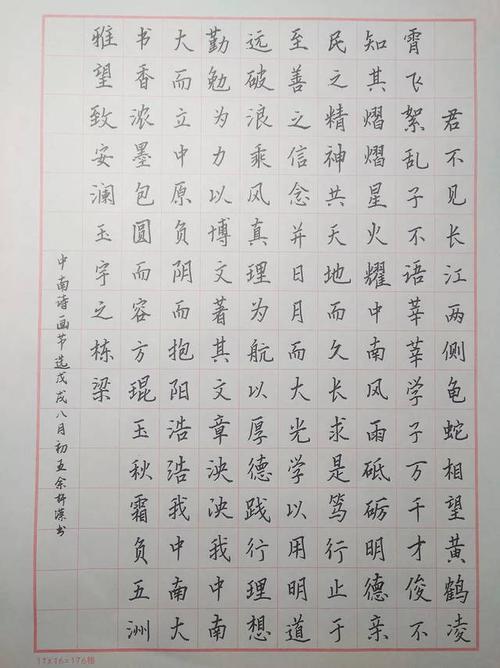 君不见长江两侧龟蛇相望黄鹤凌
霄飞絮乱子不语莘莘学子万千才俊不
知其熠熠星火耀中南风雨砥砺明德亲
民之精神共天地而久长求是笃行止于
至善之信念并日月而大光学以用明道
远破浪乘风真理为航以厚德践行理想
勤勉为力以博文著其文章泱泱我中南
大而立中原负阴而抱阳浩浩我中南大
书香浓墨包圆而容方琨玉秋霜负五洲
雅望致安澜玉宇之栋梁
中南诗画节选戊戌八月初五余书
11×16=176格